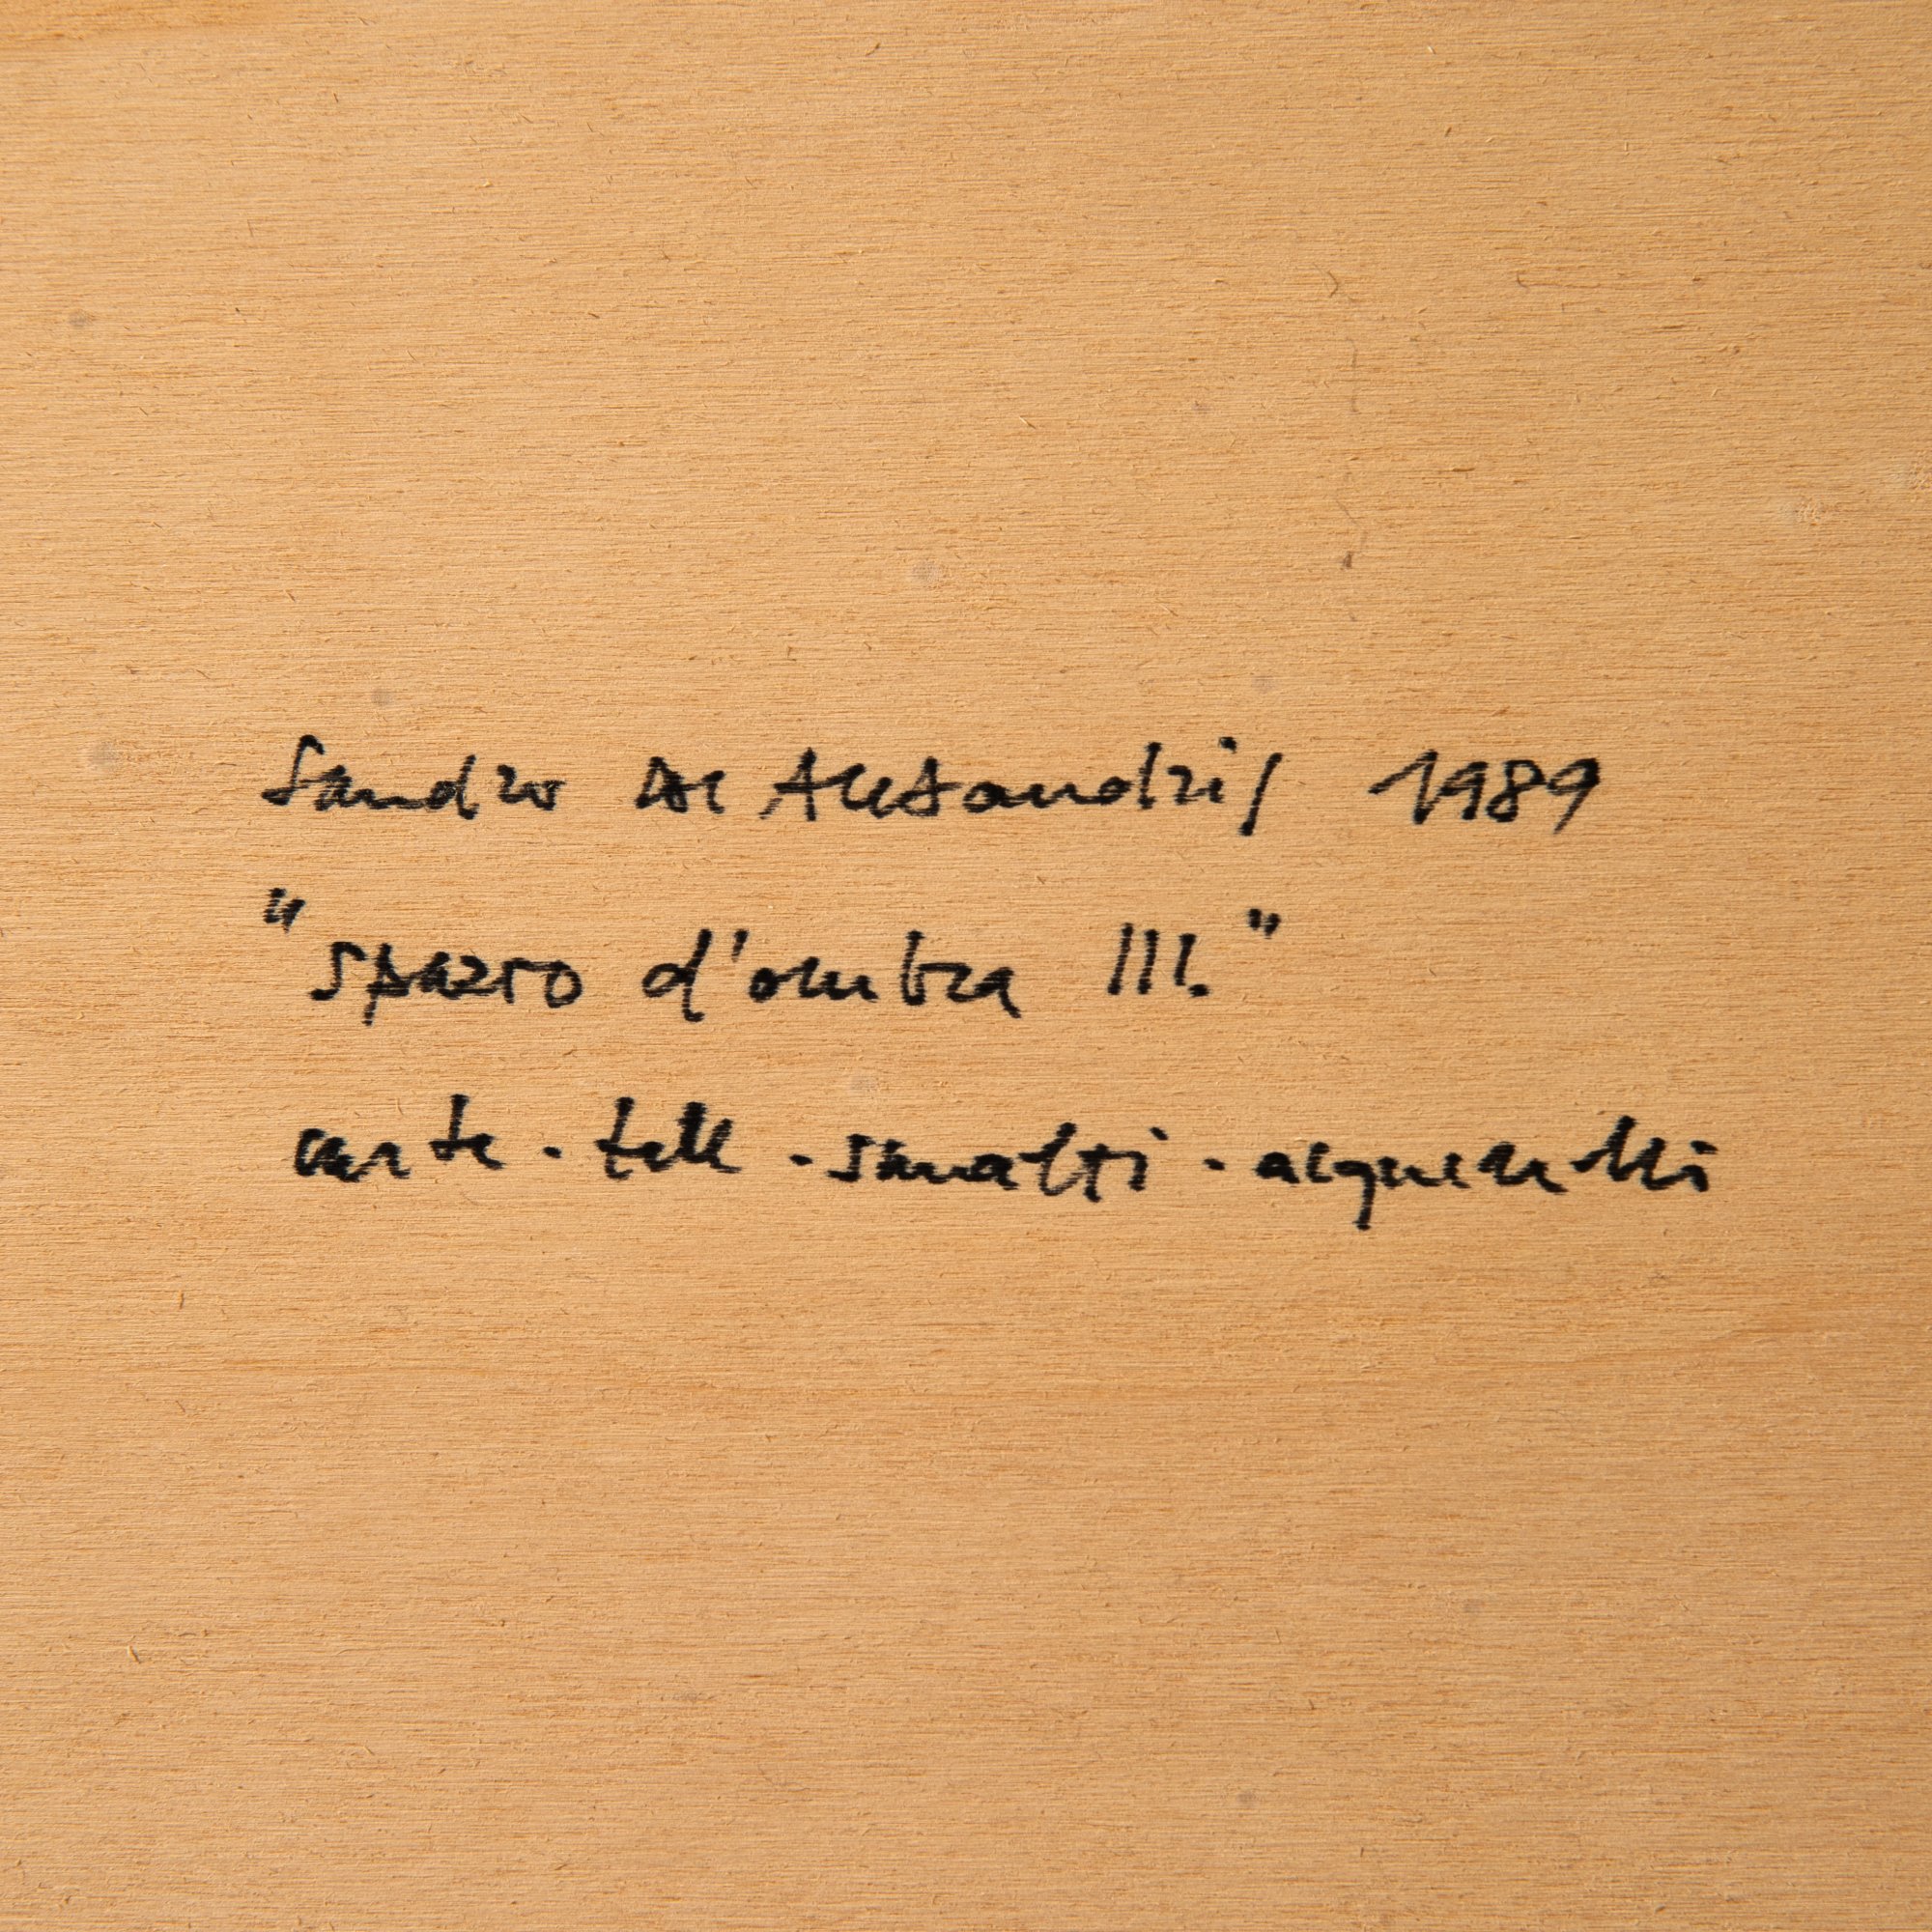 Sandro De Alexandris 1989
"spazio d'ombra III."
carte - tele - smalti - acquerelli